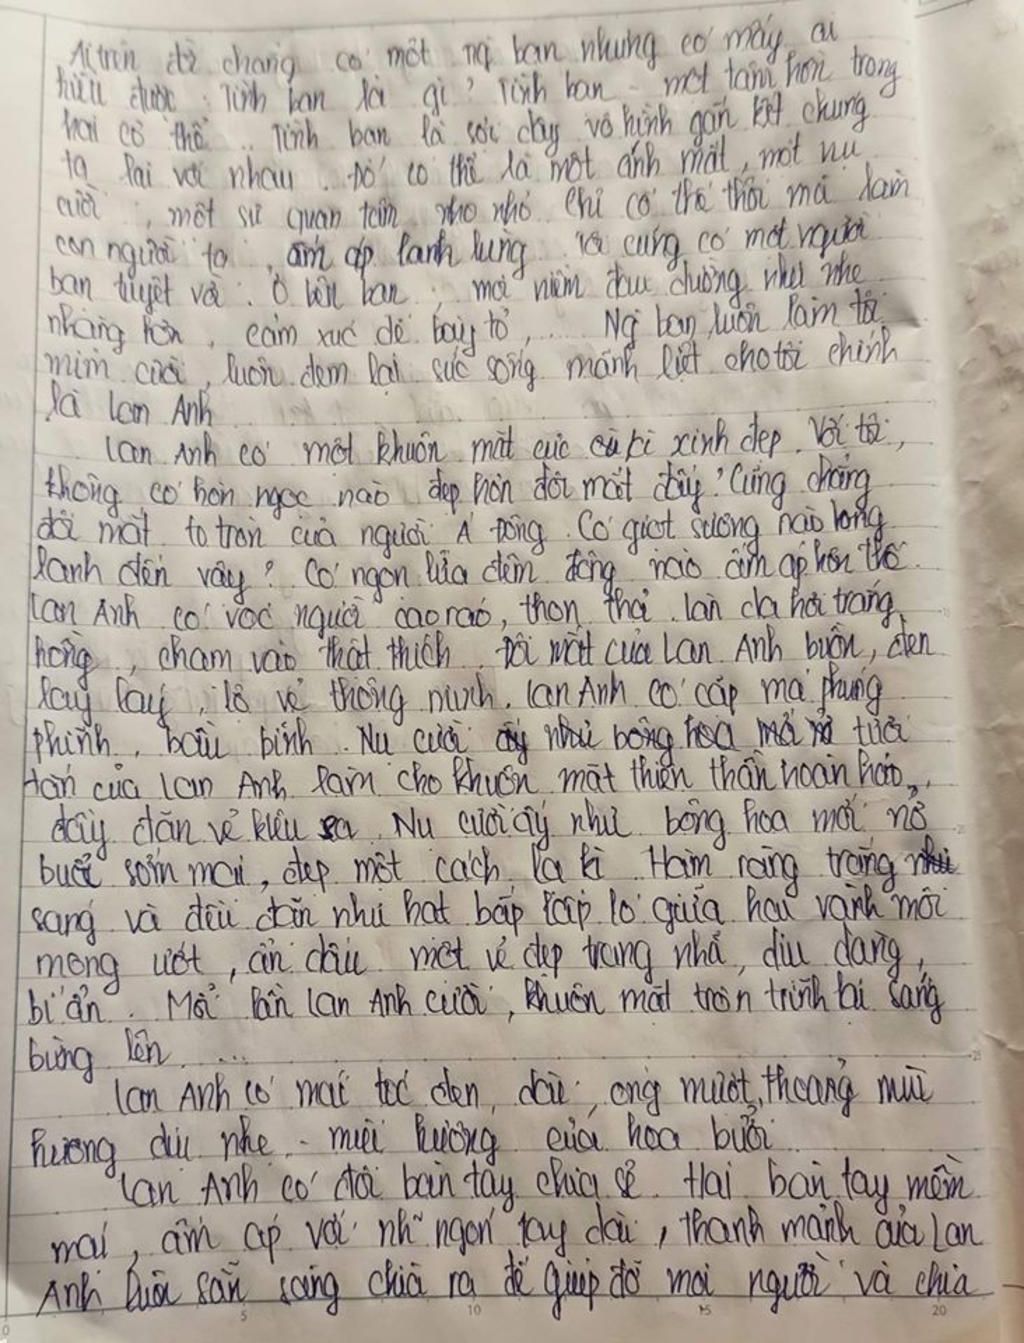 Ai trên đời chẳng có một ng bạn nhưng có mấy ai
hiểu được: Tình bạn là gì? Tình bạn - một tâm hồn trong
hai cơ thể.. Tình bạn là sợi dây vô hình gắn kết chúng
ta lại với nhau. Đó có thể là một ánh mắt, một nụ
cười, một sự quan tâm nho nhỏ. Chỉ có thế thôi mà làm
con người ta ấm áp lạnh lùng. Tôi cũng có một người
bạn tuyệt vời. Ở bên bạn, mọi niềm đau dường như nhẹ
nhàng hơn, cảm xúc dễ bày tỏ, ... Ng bạn luôn làm tôi
mỉm cười, luôn đem lại sức sống mãnh liệt cho tôi chính
là Lan Anh
Lan Anh có một khuôn mặt cực cùkì xinh đẹp. Với tôi,
không có hòn ngọc nào đẹp hơn đôi mắt đấy! Cũng chẳng
đôi mắt to tròn của người Á Đông. Có giọt sương nào long
lanh đến vậy? Có ngọn lửa đêm đông nào ấm áp hơn thế.
Lan Anh có vóc người cao ráo, thon thả. Làn da hơi trắng
hồng, chạm vào thật thích. Đôi mắt của Lan Anh buồn, đen
lay láy, lộ vẻ thông minh. Lan Anh có cặp má phúng
phính, bầu bĩnh. Nụ cười ấy như bông hoa mới nở tươi
tắn của Lan Anh làm cho khuôn mặt thiên thần hoàn hảo,
đầy đặn vẻ kiêu sa. Nụ cười ấy như bông hoa mới nở
buổi sớm mai, đẹp một cách lạ kì. Hàm răng trắng như
sáng và đều đặn như hạt bắp lấp ló giữa hai vành môi
mọng ướt, ẩn dấu một vẻ đẹp trang nhã, dịu dàng,
bí ẩn. Mỗi lần Lan Anh cười, khuôn mặt tròn trĩnh lại sáng
bừng lên ...
Lan Anh có mái tóc đen, dài, óng mượt, thoảng mùi
hương dịu nhẹ - mùi hương của hoa bưởi.
Lan Anh có đôi bàn tay chia sẻ. Hai bàn tay mềm
mại, ấm áp với nh~ ngón tay dài, thanh mảnh của Lan
Anh luôn sẵn sàng chìa ra để giúp đỡ mọi người và chia
5 10 15 20